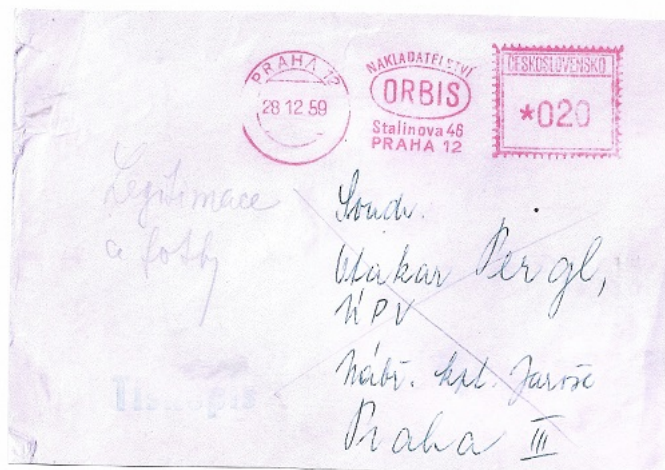 PRAHA 12
28 12 59
NAKLADATELSTVÍ
ORBIS
Stalinova 46
PRAHA 12
ČESKOSLOVENSKO
*020
Legitimace
a fotky
Soudr.
Otakar Pergl,
ÚPV
Nábř. kpt. Jaroše
Praha III
Tiskopis